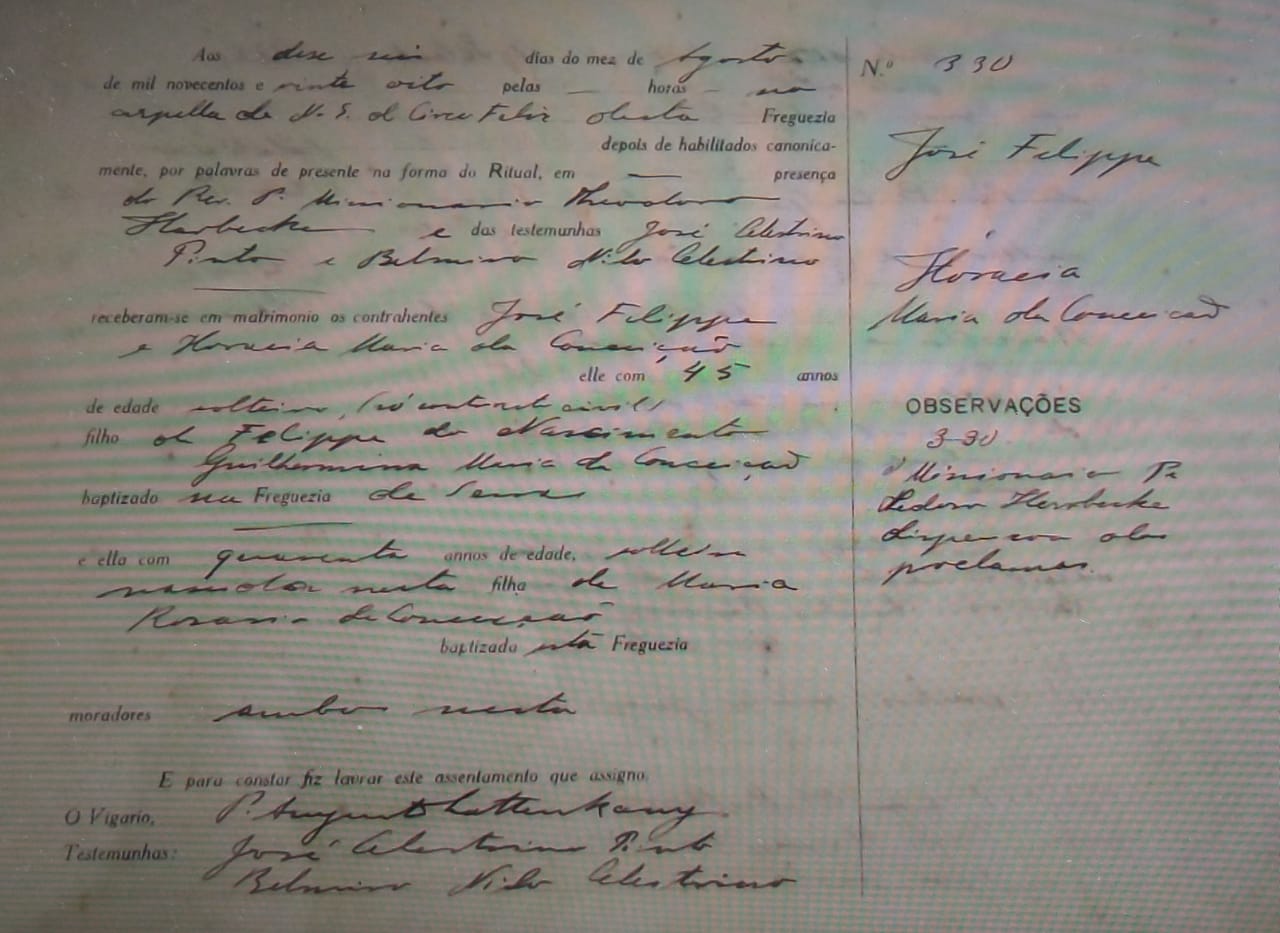 Aos dese seis dias do mez de Agosto
de mil novecentos e vinte oito pelas — horas — na
capella de N. S. d Circu Feliz desta Freguezia
depois de habilitados canonica-
mente, por palavras de presente na forma do Ritual, em — presença
do Rev. P. Missionario Theodoro
Harbecke e das testemunhas José Celestrino
Pinto e Belmiro Nilo Celestrino
receberam-se em matrimonio os contrahentes José Filippe
e Horacia Maria da Conceição
elle com 45 annos
de edade solteiro, (só contracto civil)
filho de Felippe do Nascimento
Guilhermina Maria da Conceiçaõ
baptizado na Freguezia de Serra
e ella com quarenta annos de edade, solteira
nascida nesta filha de Maria
Rosaria da Conceiçaõ
baptizada Freguezia
moradores ambos nesta
E para constar fiz lavrar este assentamento que assigno.
O Vigario, P. August
Testemunhas: José Celestrino Pinto
Belmiro Nilo Celestrino
N.º 330
José Filippe
Horacia
Maria da Conceicaõ
OBSERVAÇÕES
330
o Missionario Pe
Herbecke
dispensou dos
proclamas.